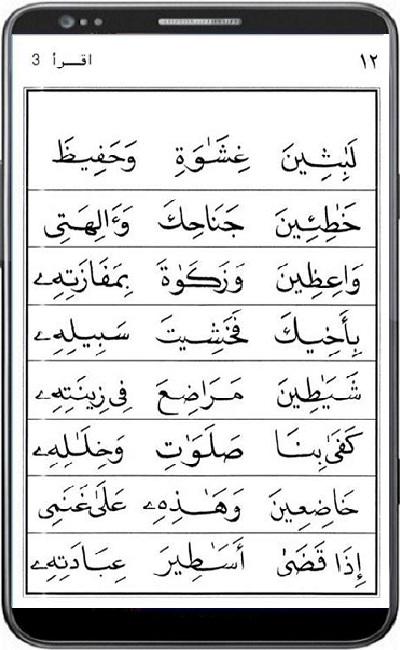 ١٢ اقـرأ 3
لَـٰبِثِينَ غِشَـٰوَةٍ وَحَفِيظَ
خَـٰطِـِٔينَ جَنَاحِكَ وَءَالِهَتِى
وَاعِظِينَ وَزَكَوٰةَ بِمَفَازَتِهِۦ
بِأَخِيكَ فَخَشِيتَ سَبِيلِهِۦ
شَيَـٰطِينَ مَرَاضِعَ فِى زِينَتِهِۦ
كَفَىٰ بِنَا صَلَوَٰتِ وَخِلَـٰلِهِۦ
خَاضِعِينَ وَهَـٰذِهِۦ عَلَىٰ غَنَمِى
إِذَا قَضَىٰٓ أَسَـٰطِيرَ عِبَادَتِهِۦ